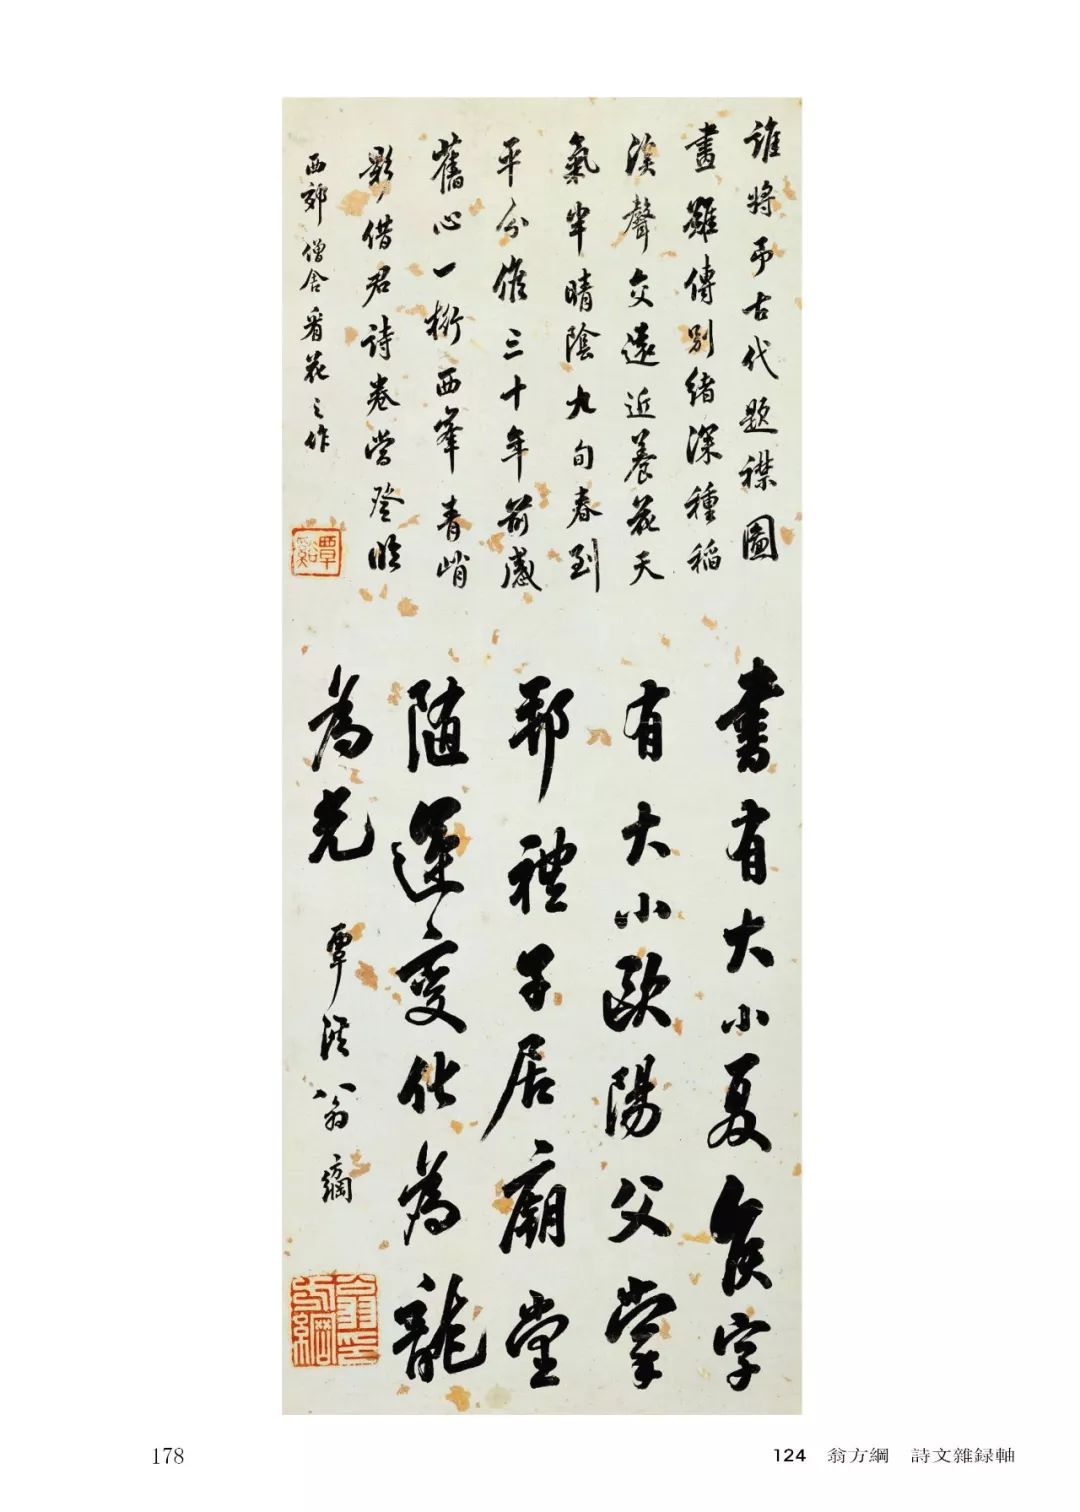 誰將弔古代題襟圖
畫雖傳別緒深種稻
溪聲交遠近養花天
氣半晴陰九旬春到
平分候三十年前感
舊心一桁西峯青峭
影借君詩卷當登臨
西郊僧舍看花之作
覃谿
書有大小夏侯字
有大小歐陽父掌
邦禮子居廟堂
隨運變化為龍
為光
覃溪翁方綱
翁方綱印
178
124 翁方綱 詩文雜録軸